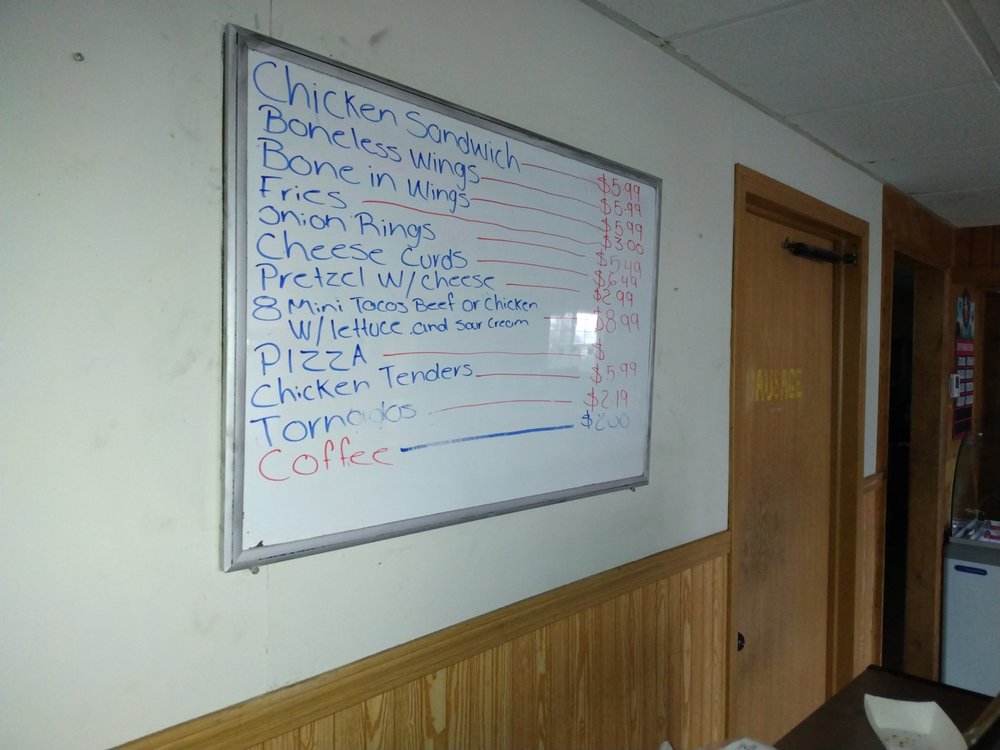 Chicken Sandwich $5.99
Boneless Wings $5.99
Bone in Wings $5.99
Fries $3.00
Onion Rings $5.49
Cheese Curds $6.49
Pretzel W/cheese $2.99
8 Mini Tacos Beef or Chicken
W/lettuce and sour cream $8.99
PIZZA $
Chicken Tenders $5.99
Tornados $2.19
Coffee $2.00